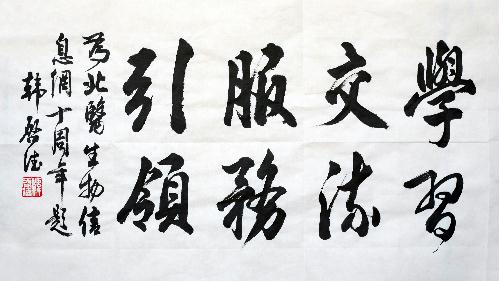 學習
交流
服務
引領
为北醫生物信
息網十周年題
韩启德